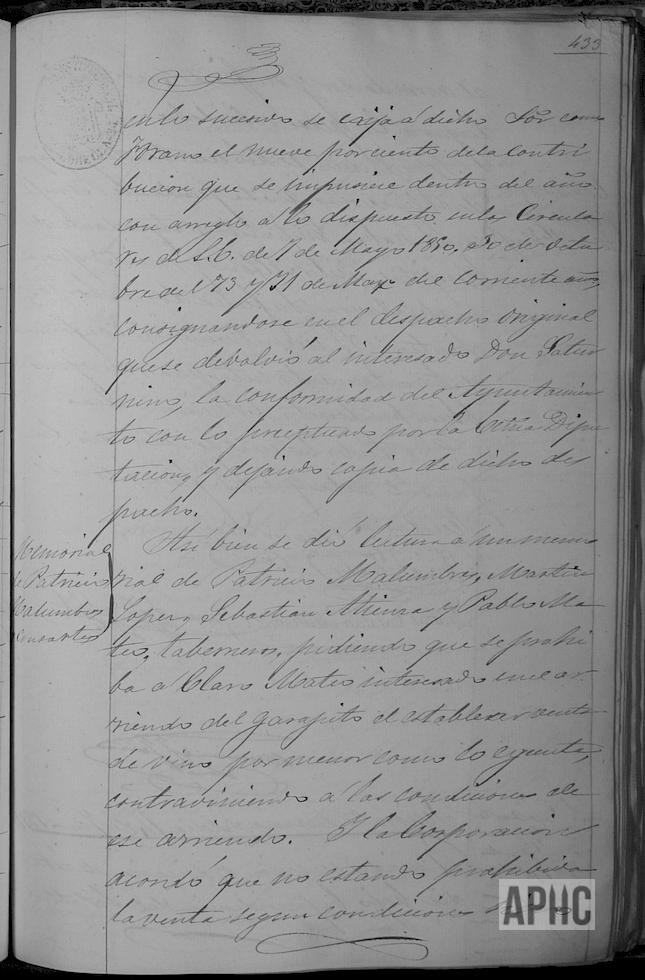 433
en lo sucesivo se exija a dicho Sõr como
forano el nueve por ciento de la contri
bucion que se impusiere dentro del año
con arreglo a lo dispuesto en las Circula
res de S.E. de 7 de Mayo 1850. 30 de Octu
bre del 73 y 21 de Mayo del corriente año,
consignandose en el despacho original
que se devolvió al interesado Don Satur
nino, la conformidad del Ayuntamien
to con lo preceptuado por la Exma Dipu
tacion, y dejando copia de dicho des
pacho.
Memorial
de Patricio
Malumbres
y consortes
Asi bien se dió lectura a un memo
rial de Patricio Malumbres, Martin
Lopez, Sebastian Atienza y Pablo Ma
teo, taberneros, pidiendo que se prohi
ba a Claro Mateo interesado en el ar
riendo del garapito el establecer venta
de vino por menor como lo ejecuta,
contraviniendo a las condiciones de
ese arriendo. Y la Corporacion
acordó que no estando prohibida
la venta segun condiciones
APHC